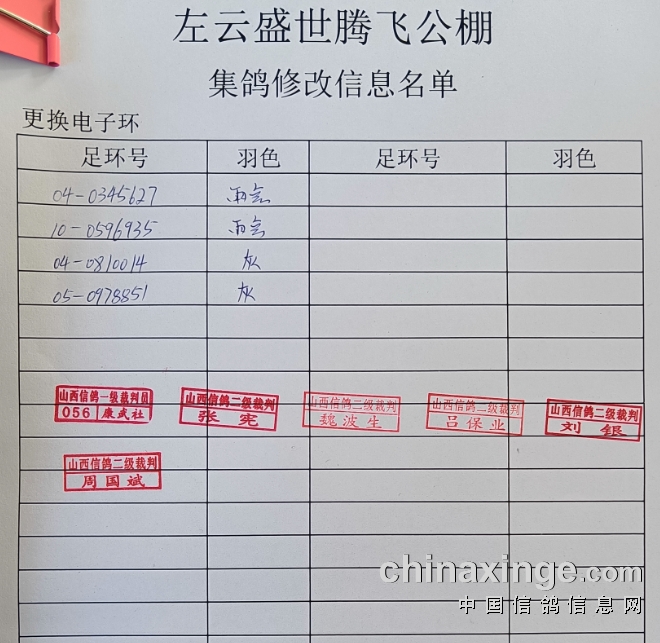 左云盛世腾飞公棚
集鸽修改信息名单
更换电子环
足环号 羽色 足环号 羽色
04-0345627 雨点
10-0596935 雨点
04-0810014 灰
05-0978851 灰
山西信鸽一级裁判员 山西信鸽二级裁判 山西信鸽二级裁判 山西信鸽二级裁判 山西信鸽二级裁判
056 康武社 张宪 魏波生 吕保业 刘银
山西信鸽二级裁判
周国斌
chinaxinge.com
中国信鸽信息网